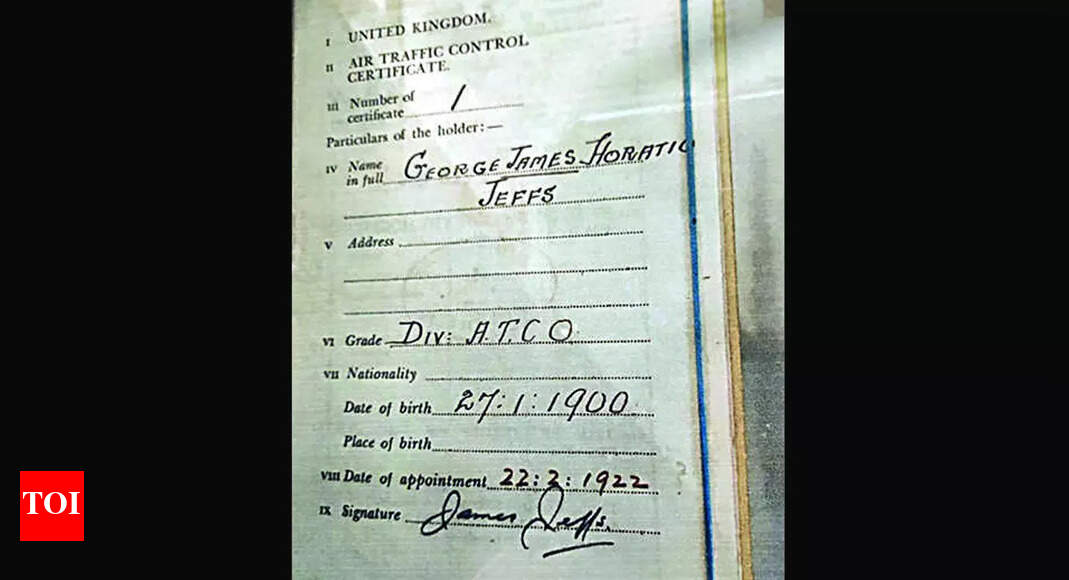 I UNITED KINGDOM.
II AIR TRAFFIC CONTROL
CERTIFICATE.
III Number of
certificate 1
Particulars of the holder:—
IV Name
in full GEORGE JAMES HORATIO
JEFFS
V Address
VI Grade DIV: A.T.C O.
VII Nationality
Date of birth 27:1:1900
Place of birth
VIII Date of appointment 22:2:1922
IX Signature James Jeffs.
TOI